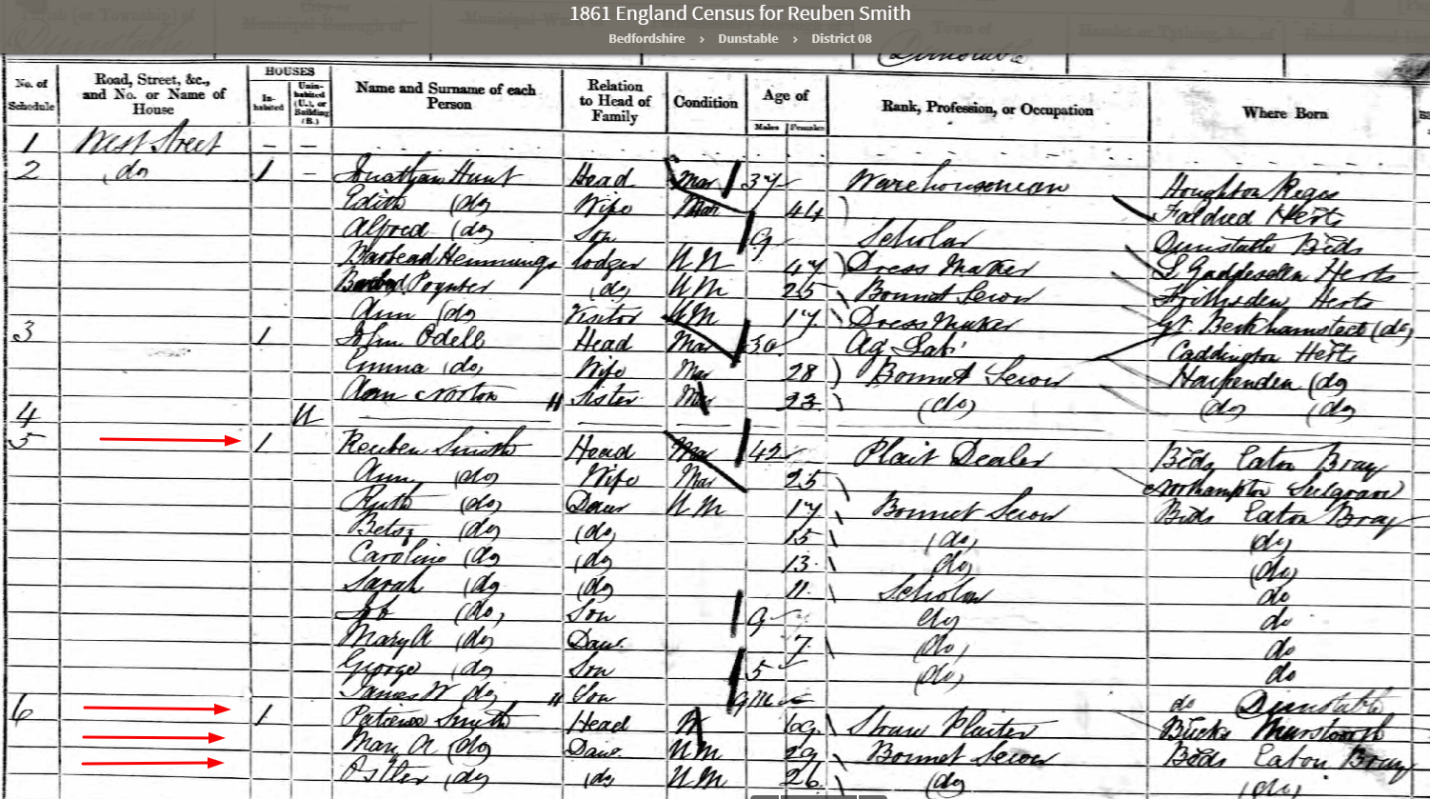 1861 England Census for Reuben Smith
Bedfordshire › Dunstable › District 08
Dunstable
No. of Schedule Road, Street, &c., and No. or Name of House HOUSES In-habited Unin-habited (U.), or Building (B.) Name and Surname of each Person Relation to Head of Family Condition Age of Males Females Rank, Profession, or Occupation Where Born
1 West Street – –
2 do 1 – Jonathan Hunt Head Mar 37 Warehouseman Houghton Regis
Edith (do) Wife Mar 44 Herts
Alfred (do) Son 9 Scholar Dunstable Beds
Hemmings Lodger UM 47 Dress Maker Gaddesden Herts
Poynter (do) UM 25 Bonnet Sewer Frithsden Herts
Ann (do) Visitor UM 17 Dress Maker Gt. Berkhamsted (do)
3 1 John Odell Head Mar 30 Ag Lab Caddington Herts
Emma (do) Wife Mar 28 Bonnet Sewer Harpenden (do)
Ann Norton Sister 23 (do) (do) (do)
4 U
5 1 Reuben Smith Head Mar 42 Plait Dealer Beds Eaton Bray
Ann (do) Wife Mar 25 Northampton Sulgrave
Ruth (do) Daur UM 17 Bonnet Sewer Beds Eaton Bray
Betsy (do) (do) 15 (do) (do)
Caroline (do) (do) 13 (do) (do)
Sarah (do) (do) 11 Scholar do
Job (do) Son 9 (do) do
Mary A (do) Daur. 7 (do) do
George (do) Son 5 (do) do
James W do Son 9m do Dunstable
6 1 Patience Smith Head W 69 Straw Plaiter Bucks Marsworth
Mary A (do) Daur. UM 29 Bonnet Sewer Beds Eaton Bray
(do) (do) UM 26 (do) (do)